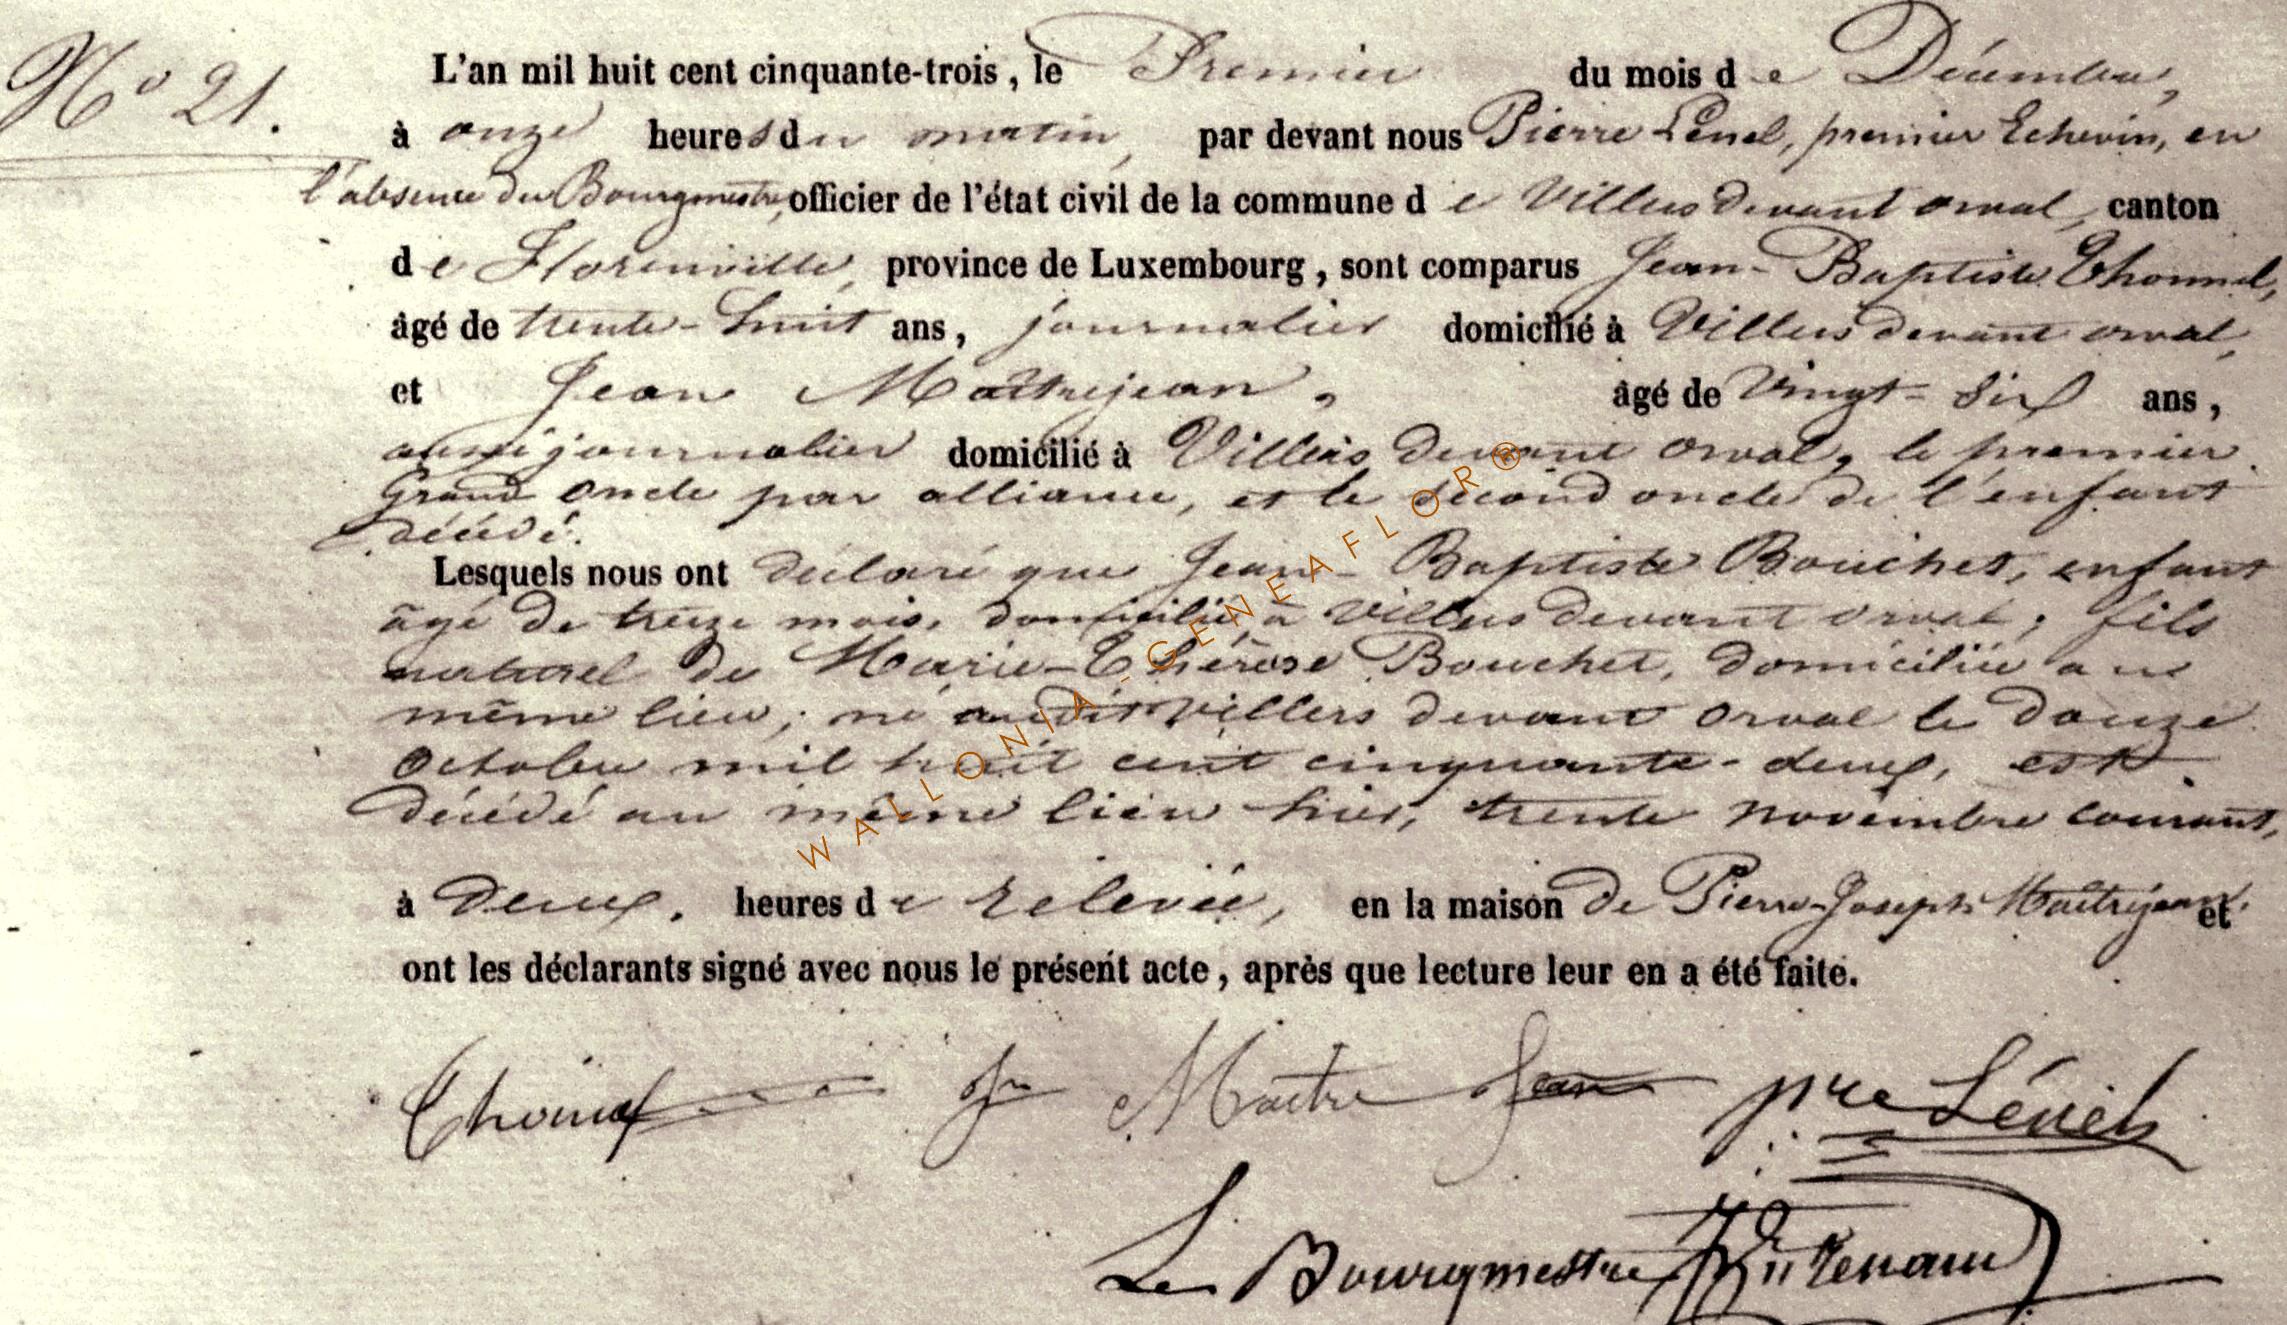 N° 21.
L'an mil huit cent cinquante-trois, le Premier du mois de Décembre,
à onze heures du matin, par devant nous Pierre Lénel, premier Echevin, en
l'absence du Bourgmestre, officier de l'état civil de la commune de Villers devant orval, canton
de Florenville, province de Luxembourg, sont comparus Jean-Baptiste Thonnel,
âgé de trente-huit ans, journalier domicilié à Villers devant orval,
et Jean Maîtrejean, âgé de Vingt-six ans,
aussi journalier domicilié à Villers devant orval, le premier
Grand oncle par alliance, et le second oncle de l'enfant
décédé.
Lesquels nous ont déclaré que Jean-Baptiste Bouchet, enfant
âgé de treize mois, domicilié à Villers devant orval; fils
naturel de Marie-Thérèse Bouchet, domiciliée au
même lieu; né audit Villers devant orval le douze
Octobre mil huit cent cinquante-deux, est
décédé au même lieu hier, trente novembre courant,
à Deux heures de relevée, en la maison de Pierre-Joseph Maîtrejean, et
ont les déclarants signé avec nous le présent acte, après que lecture leur en a été faite.
Jn Maitre Jean pre Lénel
Le Bourgmestre
WALLONIA - GENEAFLOR ®